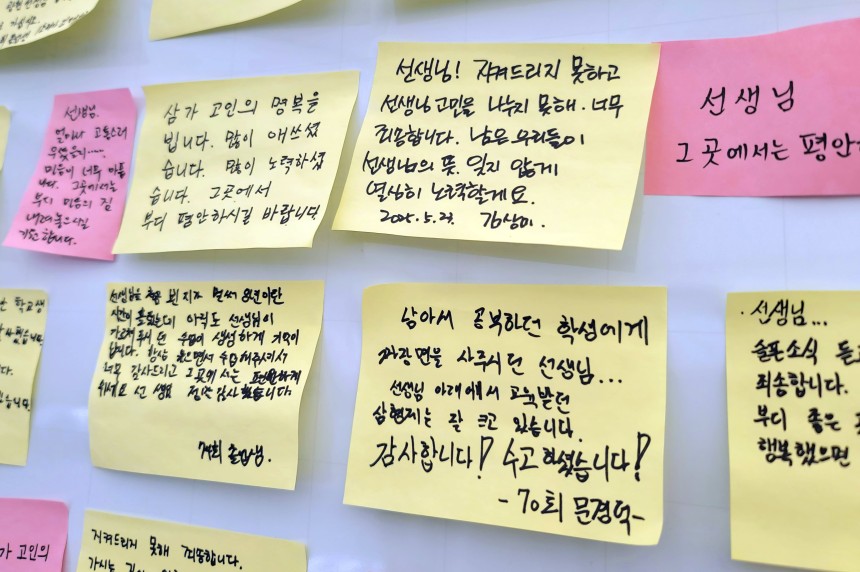 선생님.
얼마나 고통스러
우셨을지.....
마음이 너무 아픕
니다. 그곳에서는
부디 마음의 짐
내려놓으시길
기원합니다.
삼가 고인의 명복을
빕니다. 많이 애쓰셨
습니다. 많이 노력하셨
습니다. 그곳에서
부디 평안하시길 바랍니다
선생님! 지켜드리지 못하고
선생님 고민을 나누지 못해. 너무
죄송합니다. 남은 우리들이
선생님의 뜻. 잊지 않게
열심히 노력할게요.
2025.5.23.
선생님
그곳에서는 평안
학교생
습니다
다.
습니다.
선생님을 처음 뵌지가 벌써 8년이란
시간이 흘렀는데 아직도 선생님이
가르쳐 주시던 수업이 생생하게 기억이
납니다. 항상 웃으면서 수업해주셔서
너무 감사드리고 그곳에서는 편안하게
쉬세요 선생님 정말 감사했습니다.
74회 졸업생.
남아서 공부하던 학생에게
짜장면을 사주시던 선생님...
선생님 아래에서 교육받던
삼형제는 잘 크고 있습니다.
감사합니다! 수고하셨습니다!
-70회 문경덕-
· 선생님...
슬픈소식
죄송합니다.
부디 좋은
행복했으면
가 고인의
지켜드리지 못해 죄송합니다.